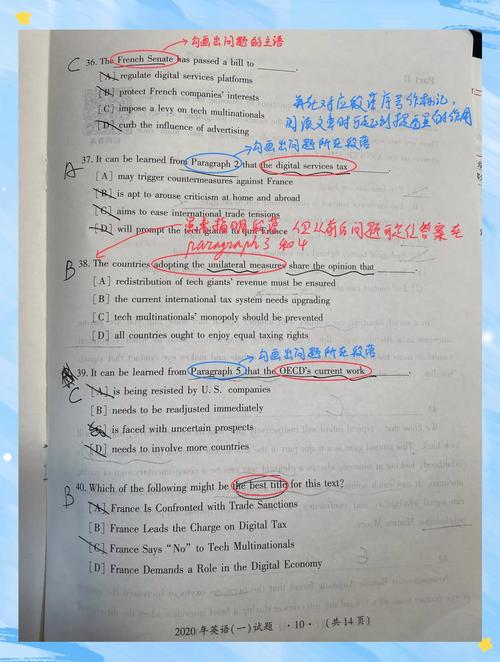 勾画出问题的主语
C 36. The French Senate has passed a bill to ______.
[A] regulate digital services platforms
[B] protect French companies' interests
[C] impose a levy on tech multinationals
[D] curb the influence of advertising
并在对应段落序号作标记,
阅读文章时可起到提醒的作用
勾画出问题所在段落
A 37. It can be learned from Paragraph 2 that the digital services tax ______.
[A] may trigger countermeasures against France
[B] is apt to arouse criticism at home and abroad
[C] aims to ease international trade tensions
[D] will prompt the tech giants to quit France
指明段落, 但从前后问题可定位答案在
paragraph 3 和 4
B 38. The countries adopting the unilateral measures share the opinion that ______.
[A] redistribution of tech giants' revenue must be ensured
[B] the current international tax system needs upgrading
[C] tech multinationals' monopoly should be prevented
[D] all countries ought to enjoy equal taxing rights
勾画出问题所在段落
39. It can be learned from Paragraph 5 that the OECD's current work ______.
C
[A] is being resisted by U. S. companies
[B] needs to be readjusted immediately
[C] is faced with uncertain prospects
[D] needs to involve more countries
B 40. Which of the following might be the best title for this text?
[A] France Is Confronted with Trade Sanctions
[B] France Leads the Charge on Digital Tax
[C] France Says "No" to Tech Multinationals
[D] France Demands a Role in the Digital Economy
2020 年英语(一)试题 · 10 · (共 14 页)